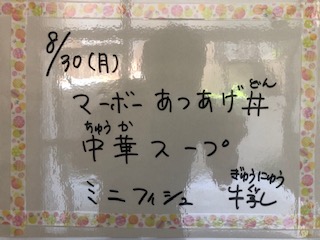 8/30(月)
マーボーあつあげ丼
どん
中華スープ
ちゅうか
ミニフィシュ 牛乳
ぎゅうにゅう